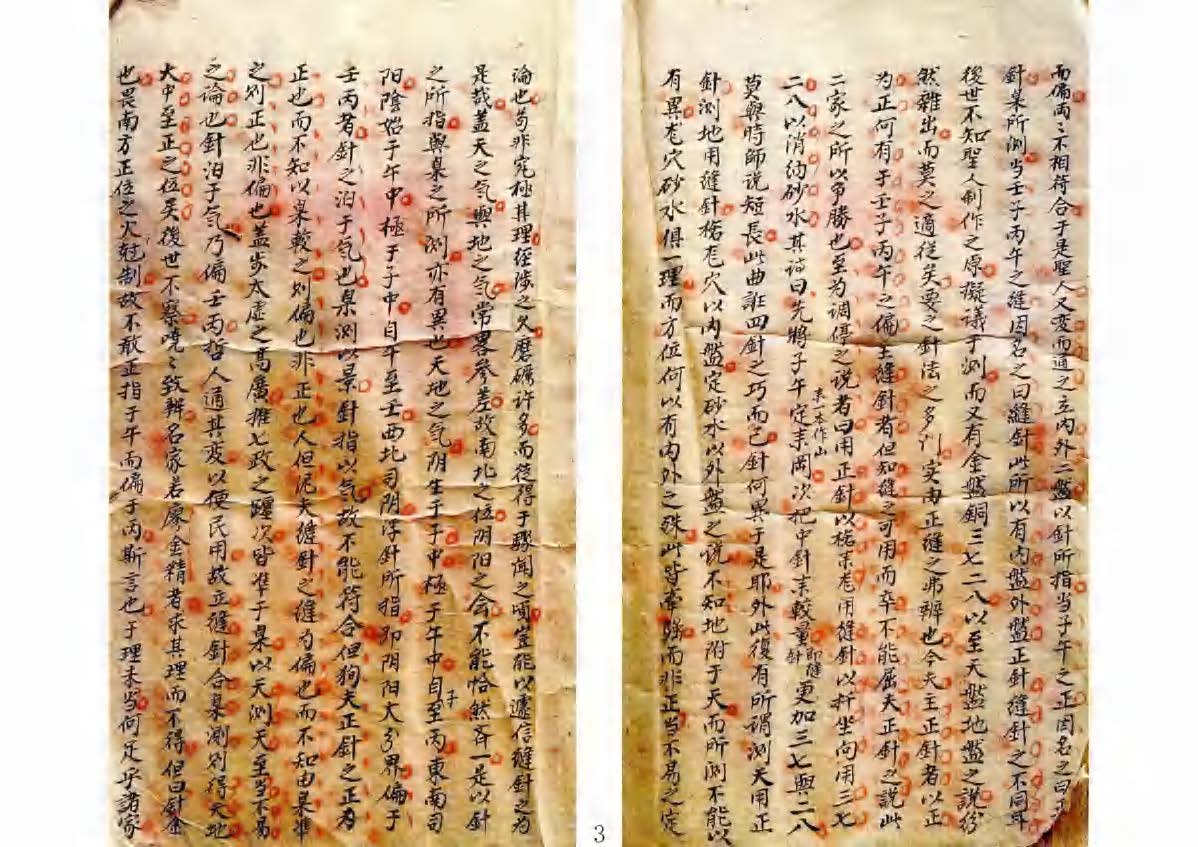 而偏両〻不相符合于是聖人又変而通之立内外二盤以針所指当子午之正因名之曰正
針臬所測当壬子丙午之縫因名之曰縫針此所以有内盤外盤正針縫針之不同耳
後世不知聖人制作之原擬議于測而又有金盤銅三七二八以至天盤地盤之説紛
然雜出而莫之適從矣要之針法之多訂实由正縫之弗辨也今夫主正針者以正
为正何有于壬子丙午之偏主縫針者但知縫之可用而卒不能屈夫正針之説此
二家之所以争勝也至为调停之説者曰用正針以格来龙用縫針以折坐向用三七
二八以消纳砂水其诗曰先將子午定来岡次把中針来較量更加三七與二八
来一本作山
即縫針
莫與時師說短長此曲誑四針之巧而已針何異于是耶外此復有所谓測天用正
針測地用縫針格龙穴以内盤定砂水以外盤之说不知地附于天而所測不能以
有異龙穴砂水俱一理而方位何以有内外之殊此皆牽强而非正当不易之定
論也苟非究極其理経陟之久磨礪许多而徒得于驟闻之頃豈能以遽信縫針之为
是哉蓋天之気與地之气常畧參差故南北之位阴阳之会不能恰然斉一是以針
之所指與臬之所測亦有異也天地之气阴生于子中極于午中自子至丙東南司
阳陰始于午中極于子中自午至壬西北司阴浮針所指即阴阳大分界偏于
壬丙者針之泊于气也臬測以景針指以气故不能符合但狥夫正針之正为
正也而不知以臬較之则偏也非正也人但泥夫縫針之縫为偏也而不知由臬準
之则正也非偏也蓋步太虚之髙廣推七政之躔次皆準于臬以天測天至当不易
之论也針泊于气乃偏壬丙哲人通其变以便民用故立縫針合臬測则得天地
大中至正之位矣後世不察嘵〻致辨名家若廖金精者求其理而不得但曰針金
也畏南方正位之火尅制故不敢正指于午而偏于丙斯言也于理未当何足乎諸家
3